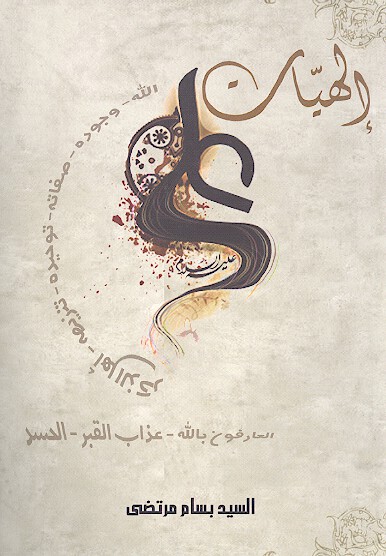 إلهيّات
علي
عليه السلام
الله - وجوده - صفاته - توحيده - تنزيهه - أهل الذكر
العارفون بالله - عذاب القبر - الحسد
السيد بسام مرتضى